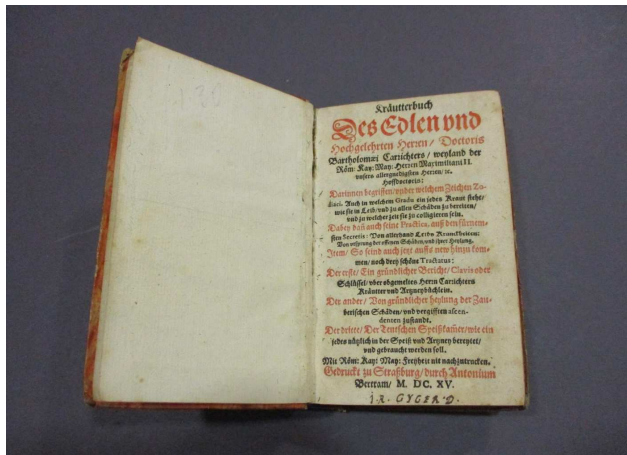 Kräutterbuch
Des Edlen vnd
Hochgelehrten Herzen / Doctoris
Bartholomæi Carrichters / weyland der
Röm: Kay: May: Herzen Maximiliani II.
vnsers allergnedigsten Herzen / ꝛc.
Hoffdoctoris:
Darinnen begriffen / vnder welchem Zeichen Zo-
diaci, Auch in welchem Gradu ein jedes Kraut stehe /
wie sie in Leib / vnd zu allen Schäden zu bereiten /
vnd zu welcher zeit sie zu colligieren sein.
Dabey daß auch seine Practica, auß den fürnem-
sten Secretis: Von allerhand Leibs Kranckheiten:
Von vrsprung der offenen Schäden / vnd jhrer Heylung.
Item / So seind auch jetzt auffs new hinzu kom-
men / noch drey schöne Tractatus:
Der erste / Ein gründlicher Bericht / Clavis oder
Schlüssel / vber obgemelten Herrn Carrichters
Kräutter vnd Artzneybüchlein.
Der ander / Von gründlicher heylung der Zau-
berischen Schäden / vnd vergifften ascen-
denten zustandt.
Der dritte / Der Teutschen Speißkam̃er / wie ein
jedes nützlich in der Speiß vnd Artzney bereytet /
vnd gebraucht werden soll.
Mit Röm: Kay: May: Freyheit nit nachzutrucken.
Gedruckt zu Straßburg / durch Antonium
Bertram / M. DC. XV.
J. R. GYGER D.